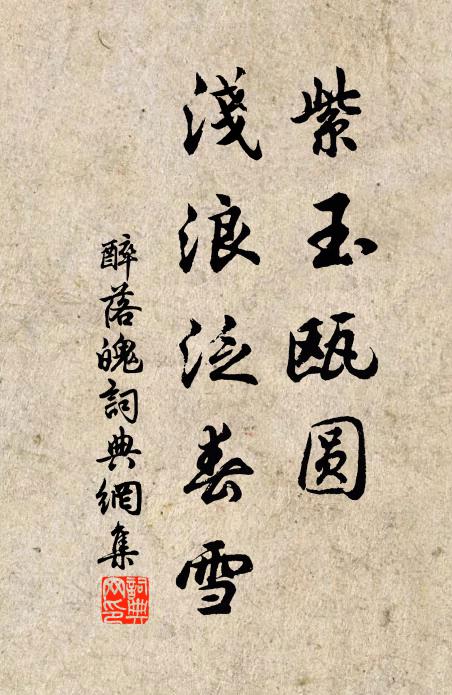 紫玉瓯圆
淺浪泛春雪
醉落魄詞典網集
詞典
文印